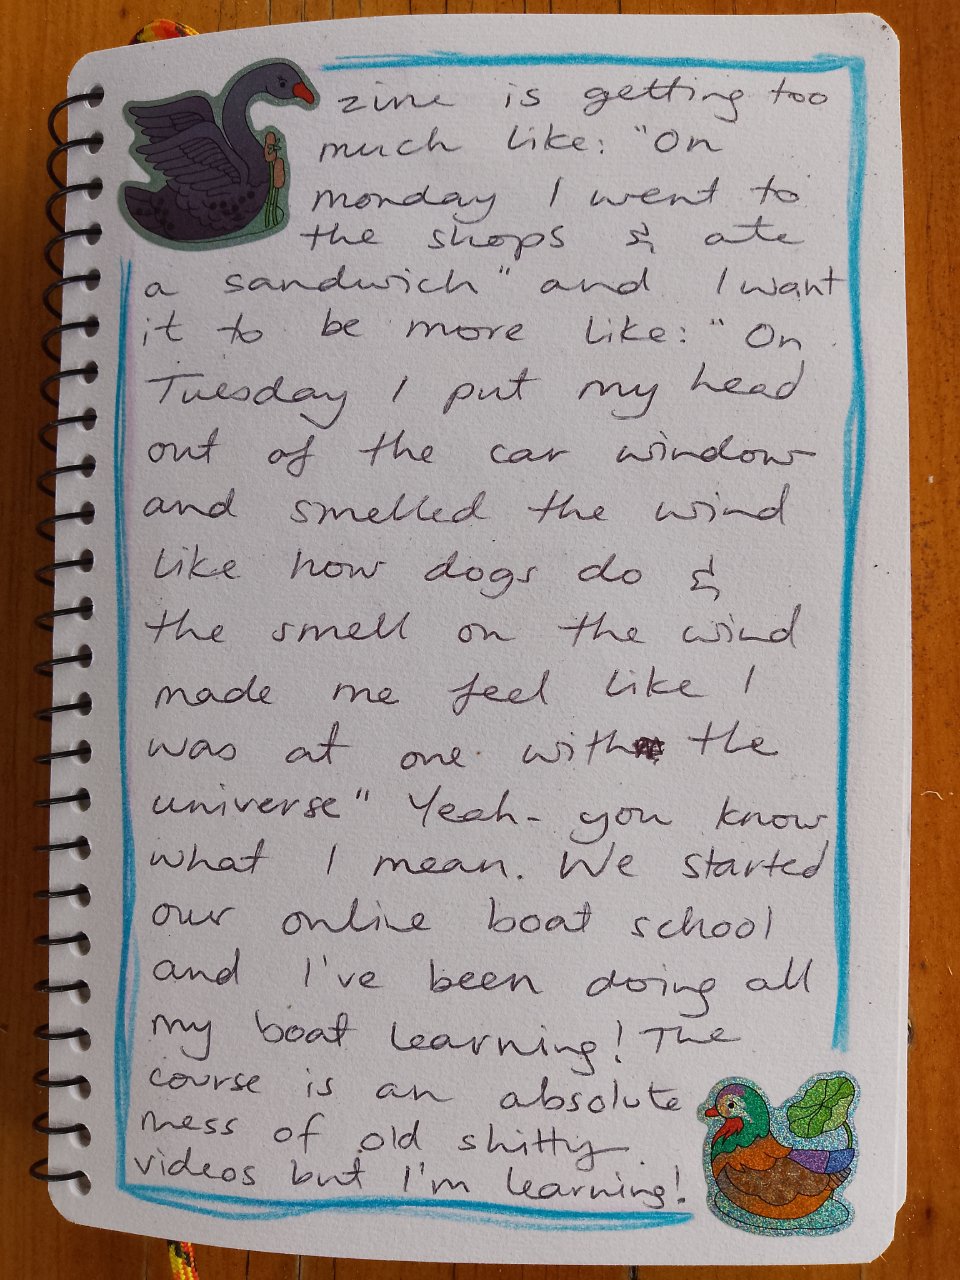 zine is getting too
much like: "On
monday I went to
the shops & ate
a sandwich" and I want
it to be more like: "On
Tuesday I put my head
out of the car window
and smelled the wind
like how dogs do &
the smell on the wind
made me feel like I
was at one with the
universe" Yeah - you know
what I mean. We started
our online boat school
and I've been doing all
my boat learning! The
course is an absolute
mess of old shitty
videos but I'm learning!